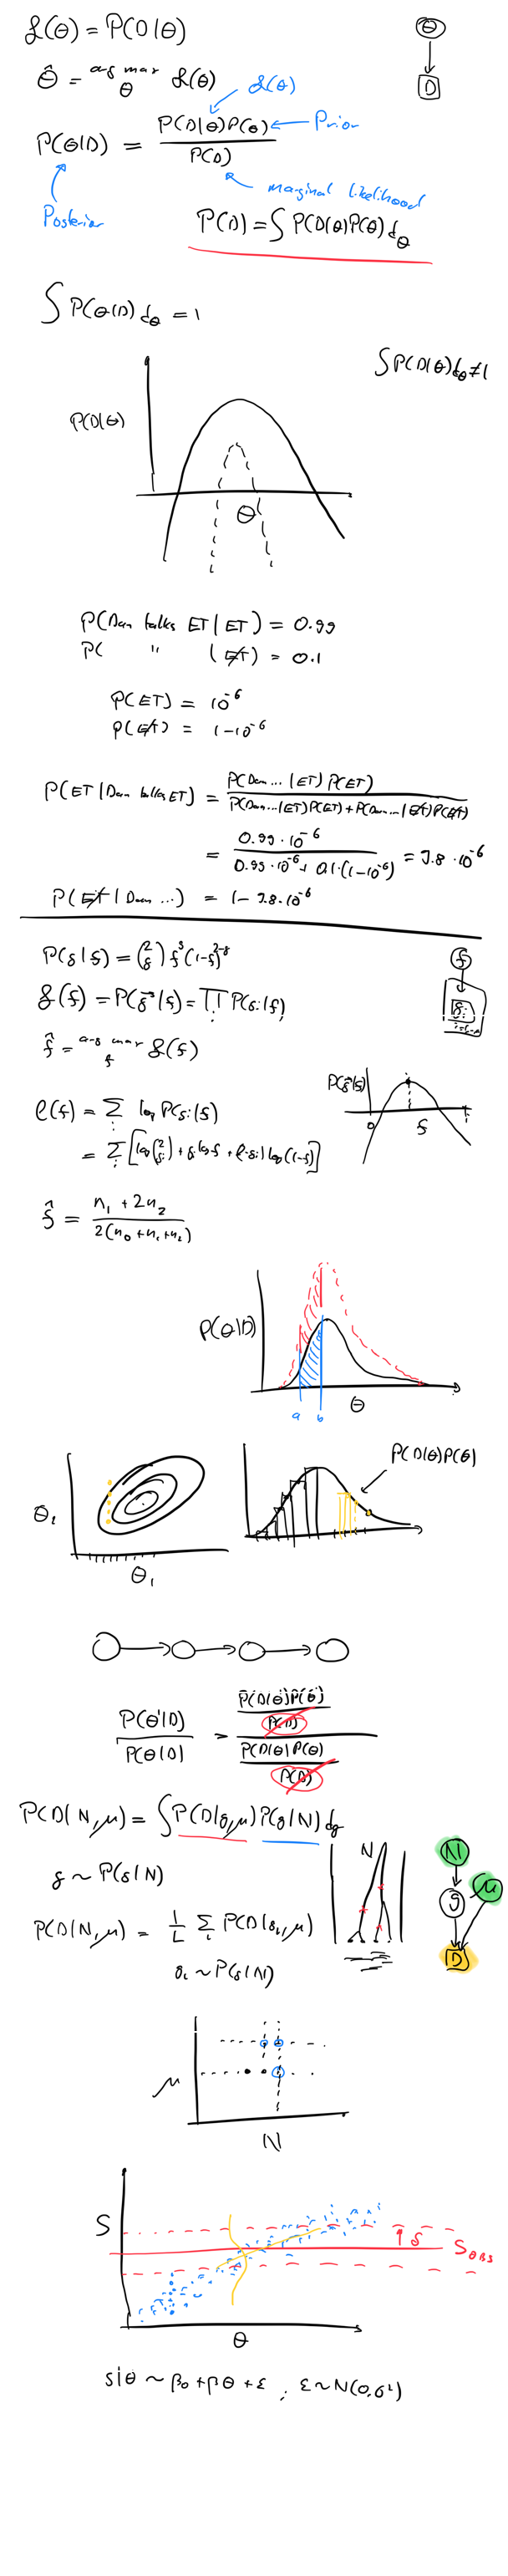 ℒ(θ) = P(D|θ)
θ
D
θ̂ = arg max ℒ(θ)
θ
ℒ(θ)
P(θ|D) = P(D|θ)P(θ) / P(D)
Prior
marginal likelihood
Posterior
P(D) = ∫ P(D|θ)P(θ) dθ
∫ P(θ|D) dθ = 1
∫ P(D|θ) dθ ≠ 1
P(D|θ)
θ
P(Dan talks ET | ET) = 0.99
P( " | E̸T̸) = 0.1
P(ET) = 10^-6
P(E̸T̸) = 1-10^-6
P(ET | Dan talks ET) = P(Dan... | ET) P(ET) / P(Dan...|ET)P(ET) + P(Dan...|E̸T̸)P(E̸T̸)
= 0.99 · 10^-6 / 0.99 · 10^-6 + 0.1·(1-10^-6) = 9.8 · 10^-6
P(E̸T̸ | Dan ...) = 1 - 9.8 · 10^-6
P(g|f) = (2 g) f^g (1-f)^2-g
f
ℒ(f) = P(g⃗|f) = ∏ P(gi|f)
i
gi
f̂ = arg max ℒ(f)
f
P(g⃗|f)
0
f
1
ℓ(f) = Σ log P(gi|f)
i
= Σ [log(2 gi) + gi log f + (2-gi) log(1-f)]
i
f̂ = n1 + 2n2 / 2(n0 + n1 + n2)
P(θ|D)
θ
a b
P(D|θ)P(θ)
θ1
θ1
P(θ'|D) / P(θ|D) = P(D|θ')P(θ') / P(D) / P(D|θ)P(θ) / P(D)
P(D|N,μ) = ∫ P(D|g,μ) P(g|N) dg
g ~ P(g|N)
N
N
μ
g
D
P(D|N,μ) = 1/L Σ P(D|gi,μ)
i
gi ~ P(g|N)
μ
N
S
δ
SOBS
θ
s|θ ~ β0 + βθ + ε , ε ~ N(0,σ²)